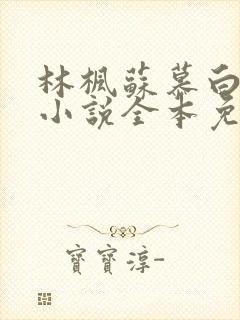 林楓蘇慕白
小說全本免
寶寶淳-